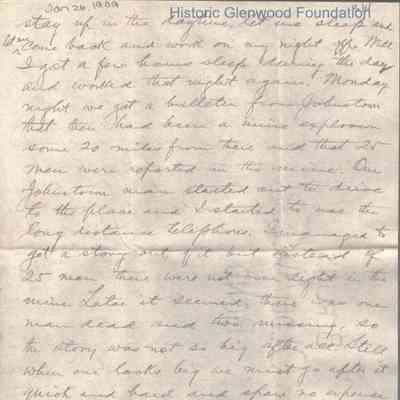 Jan 26, 1909
Historic Glenwood Foundation
stay up in the daytime, let me sleep and
come back and work on my night off. Well
I got a few hours sleep during the day
and worked that night again. Monday
night we got a bulletin from Johnstown
that there had been a mine explosion
some 20 miles from there and that 25
men were reported in the mine. Our
Johnstown man started out to drive
to the place and I started to use the
long distance telephone. I managed to
get a story out of it but instead of
25 men there were not over eight in the
mine. Later it seemed there was one
man dead and two missing, so
the story was not so big after all. Still
when one looks big we must go after it
quick and hard and spare no expense